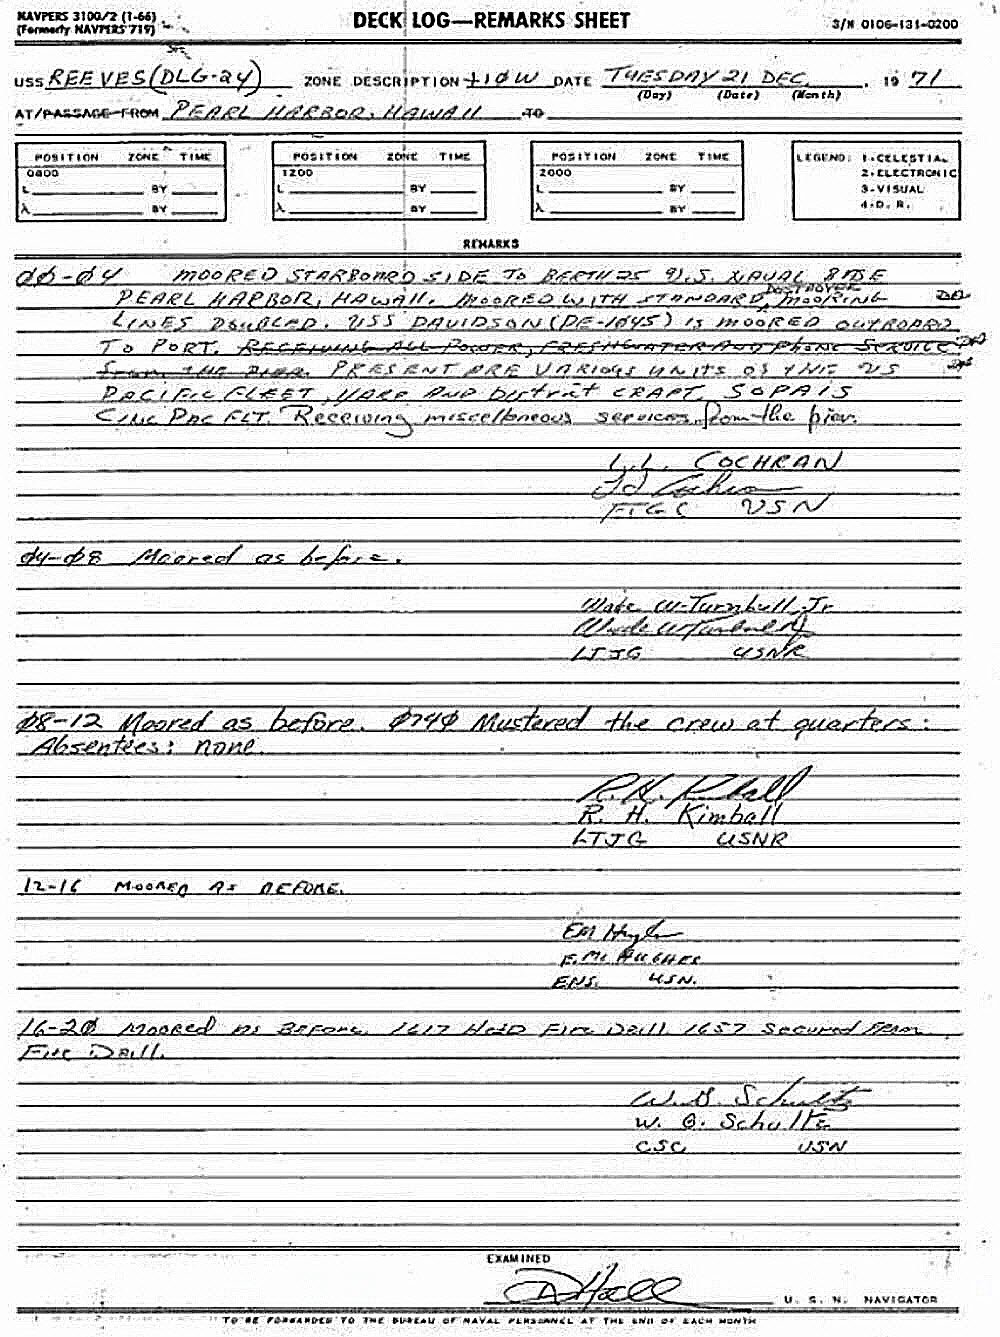 NAVPERS 3100/2 (1-66)
(Formerly NAVPERS 719)
DECK LOG—REMARKS SHEET
S/N 0106-131-0200
USS REEVES (DLG-24) ZONE DESCRIPTION +10W DATE TUESDAY 21 DEC, 19 71
(Day) (Date) (Month)
AT/PASSAGE FROM PEARL HARBOR, HAWAII TO
POSITION ZONE TIME
0800
L BY
λ BY
POSITION ZONE TIME
1200
L BY
λ BY
POSITION ZONE TIME
2000
L BY
λ BY
LEGEND: 1-CELESTIAL
2-ELECTRONIC
3-VISUAL
4-D. R.
REMARKS
ØØ-Ø4 MOORED STARBOARD SIDE TO BERTH 25 U.S. NAVAL BASE
DESTROYER
PEARL HARBOR, HAWAII. MOORED WITH STANDARD MOORING
LINES DOUBLED. USS DAVIDSON (DE-1045) IS MOORED OUTBOARD
TO PORT. RECEIVING ALL POWER, FRESHWATER AND PHONE SERVICE
FROM THE PIER. PRESENT ARE VARIOUS UNITS OF THE US
PACIFIC FLEET, YARD AND District CRAFT, SOPA IS
CINC PAC FLT. Receiving miscellaneous services from the pier.
L.L. COCHRAN
FTGC USN
Ø4-Ø8 Moored as before.
Wade W. Turnbull, Jr
LTJG USNR
Ø8-12 Moored as before. Ø74Ø Mustered the crew at quarters:
Absentees: none.
R. H. Kimball
R. H. Kimball
LTJG USNR
12-16 MOORED AS BEFORE.
EM Hughes
E. M. HUGHES
ENS. USN.
16-2Ø Moored As Before. 1617 Held Fire Drill 1657 Secured From
Fire Drill.
W. G. Schultz
W. G. Schultz
CSC USN
EXAMINED
U. S. N. NAVIGATOR
TO BE FORWARDED TO THE BUREAU OF NAVAL PERSONNEL AT THE END OF EACH MONTH